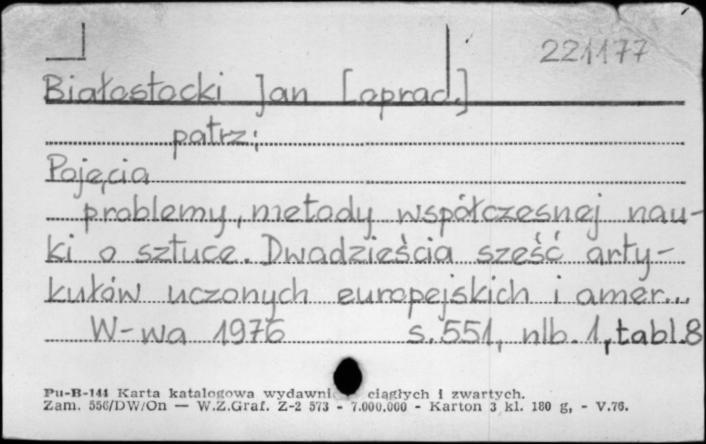 221177
Białostocki Jan [oprac.]
patrz:
Pojęcia
problemy, metody współczesnej nau-
ki o sztuce. Dwadzieścia sześć arty-
kułów uczonych europejskich i amer...
W-wa 1976 s. 551, nlb. 1, tabl. 8
Pu-B-144 Karta katalogowa wydawni ciągłych i zwartych.
Zam. 556/DW/On — W.Z.Graf. Z-2 573 - 7.000.000 - Karton 3 kl. 180 g, - V.76.